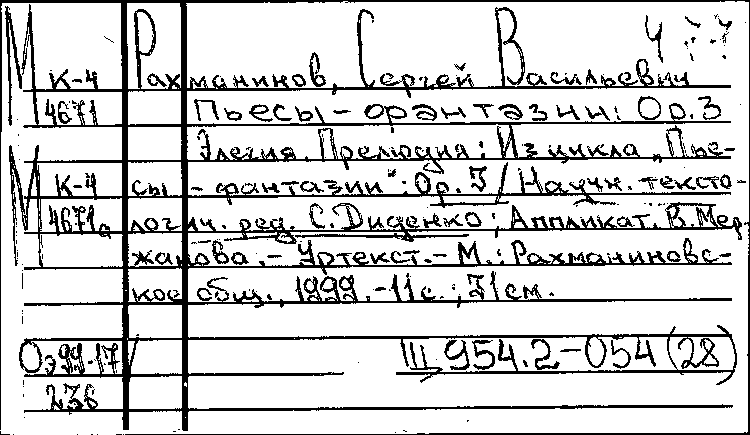 М К-4 Рахманинов, Сергей Васильевич
4671 Пьесы-фантазии: Ор.3
Элегия. Прелюдия: Из цикла „Пье-
М К-4 сы - фантазии": Ор. 3 / Научн. тексто-
4671а логич. ред. С. Диденко; Аппликат. В. Мер-
жанова. - Уртекст. - М.: Рахманиновс-
кое общ., 1999. - 11 с.; 31 см.
Оэ99-17/ Щ 954.2-054 (28)
236